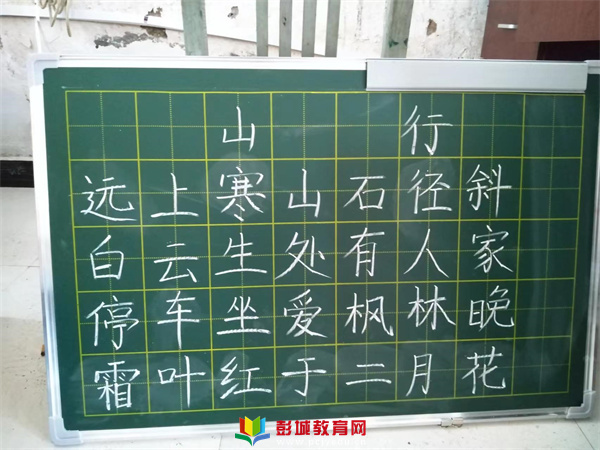 山行
远上寒山石径斜
白云生处有人家
停车坐爱枫林晚
霜叶红于二月花
彭城教育网